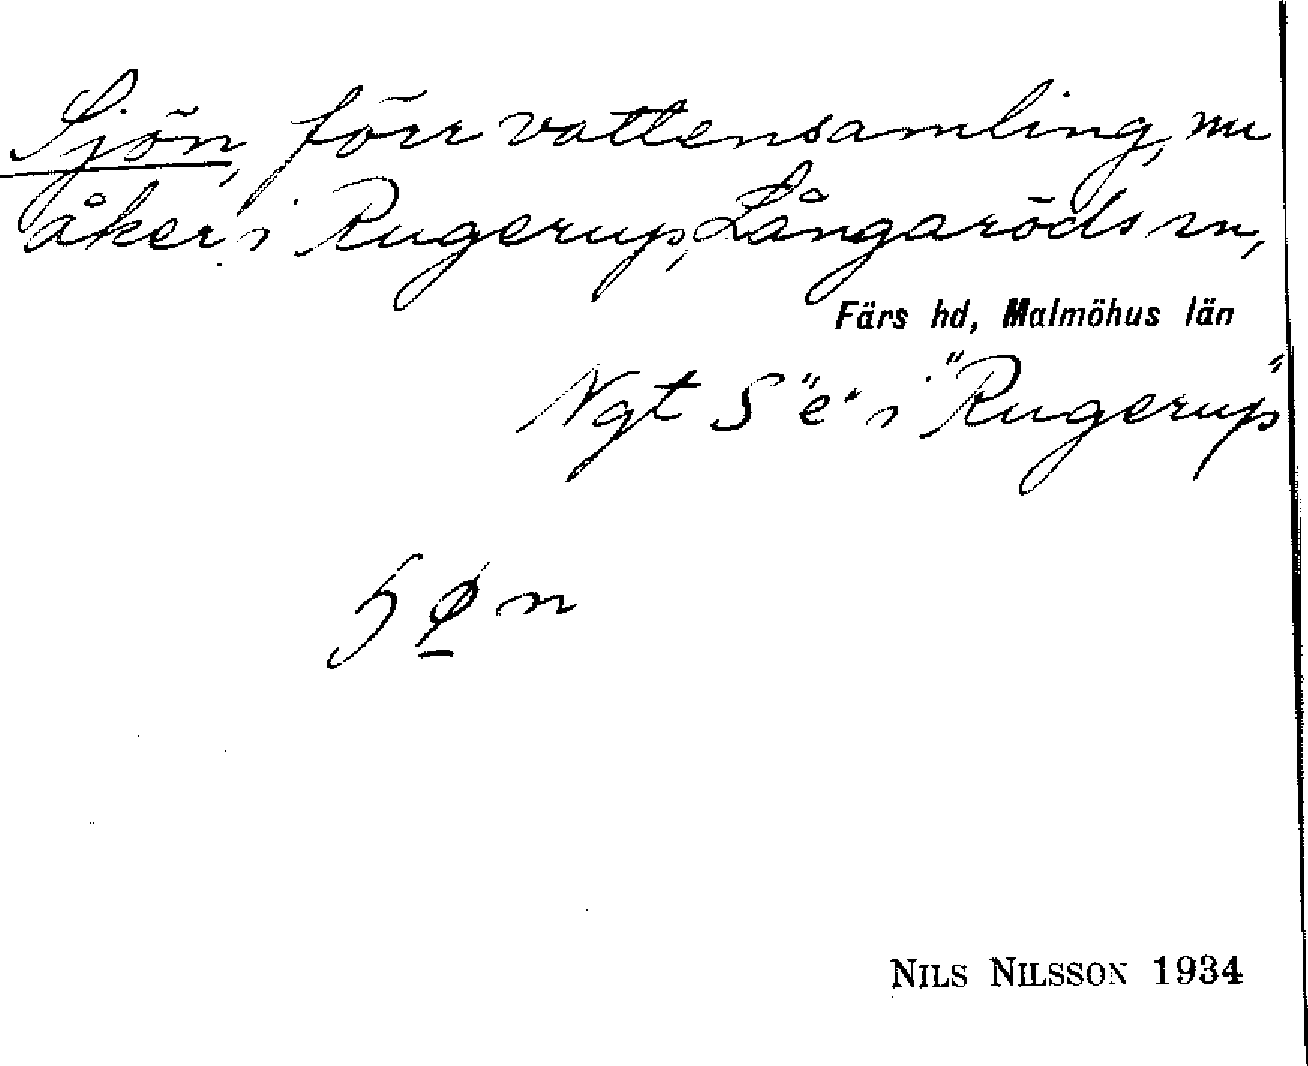 Sjön, förr vattensamling, nu
åker i Rugerup, Långaröds sn,
Färs hd, Malmöhus län
Ngt S "e" i "Rugerup"
NILS NILSSON 1934